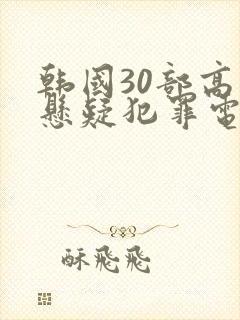 韩国30部高
悬疑犯罪电
酥飛飛